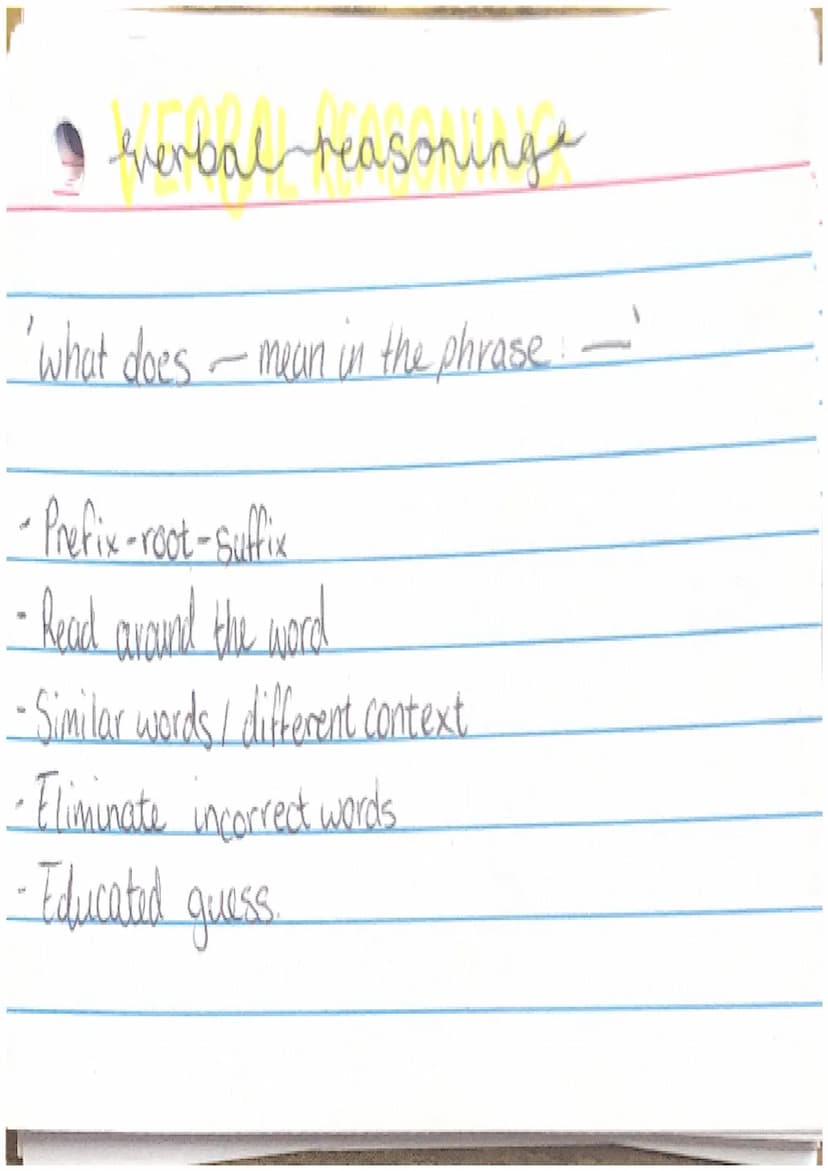 VERBAL REASONING
verbal reasoning
'what does — mean in the phrase: —'
- Prefix-root-suffix
- Read around the word
- Similar words / different context
- Eliminate incorrect words
- Educated guess.